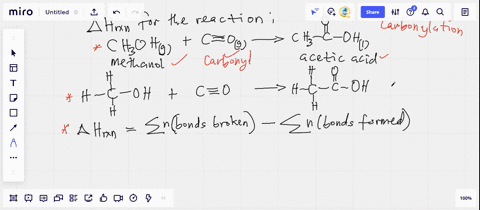 miro Untitled Share
ΔHrxn for the reaction;
Carbonylation
* CH₃OH(g) + C≡O(g) → CH₃-C-OH(l)
O
methanol ✓ Carbonyl acetic acid ✓
H H O
* H-C-OH + C≡O → H-C-C-OH
H H
* ΔHrxn = Σn(bonds broken) − Σn(bonds formed)
100%